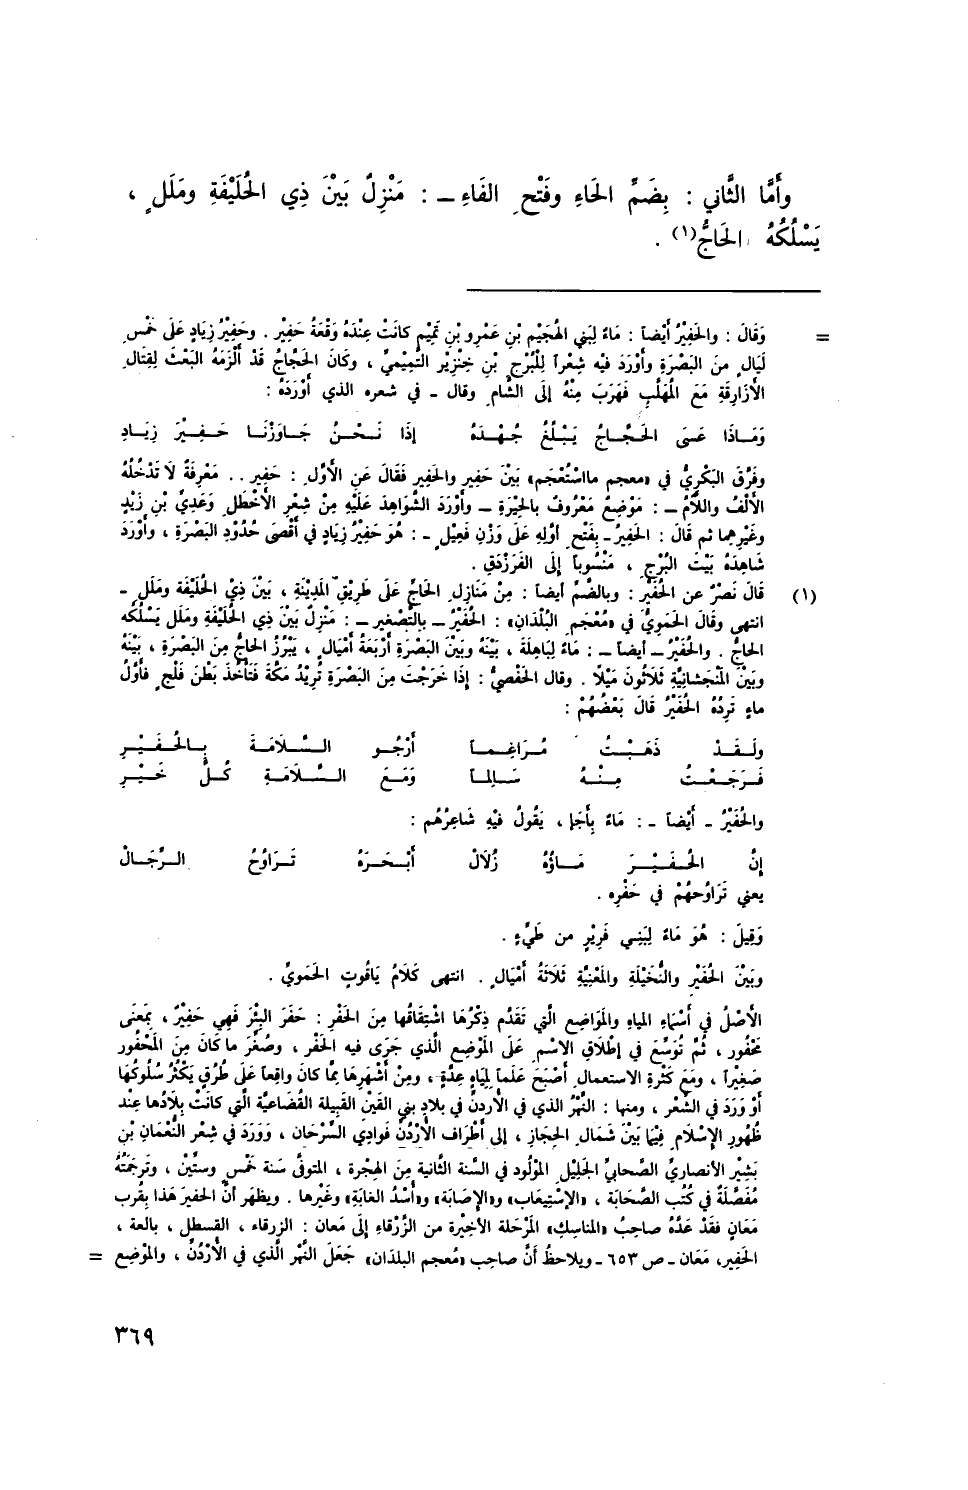 وأَمَّا الثَّاني : بِضَمِّ الحَاءِ وفَتْحِ الفَاءِ ــ : مَنْزِلٌ بَيْنَ ذِي الحُلَيْفَةِ ومَلَلٍ ،
يَسْلُكُهُ الحَاجُّ(١) .
= وَقَالَ : والحَفِيْرُ أَيْضاً : مَاءٌ لِبَنِي الهُجَيْمِ بْنِ عَمْرِو بْنِ تَمِيْمٍ كانَتْ عِنْدَهُ وَقْعَةُ حَفِيْر . وحَفِيْرُ زِيَادٍ عَلَى خَمْسِ
لَيَالٍ مِنَ البَصْرَةِ وأَوْرَدَ فيْه شِعْراً لِلْبُرْجِ بْنِ خِنْزِيْر التَّمِيْمِيِّ ، وكَانَ الحَجَّاجُ قَدْ أَلْزَمَهُ البَعْثَ لِقِتَالِ
الأَزَارِقَةِ مَعَ المُهَلَّبِ فَهَرَبَ مِنْهُ إِلَى الشَّامِ وقال ـ في شعره الذي أَوْرَدَهُ :
وَمَـاذَا عَسَى الحَـجَّـاجُ يَـبْـلُغُ جُـهْـدَهُ إِذَا نَـحْـنُ جَـاوَزْنَـا حَـفِـيْـرَ زِيَـادِ
وفَرَّقَ البَكْرِيُّ في «معجم مااسْتُعْجَم» بَيْنَ حَفِير والحَفِير فَقَالَ عَنِ الأَوَّلِ : حَفِير .. مَعْرِفَةٌ لاَ تَدْخُلُهُ
الأَلْفُ واللَّامُ ــ : مَوْضِعٌ مَعْرُوفٌ بالحِيْرَةِ ــ وأَوْرَدَ الشَّوَاهِدَ عَلَيْهِ مِنْ شِعْرِ الأَخْطَلِ وَعَدِيِّ بْنِ زَيْدٍ
وغَيْرِهِما ثم قَالَ : الحَفِيْرُ ـ بِفَتْحِ أَوَّلِهِ عَلَى وَزْنِ فَعِيْلٍ ـ : هُوَ حَفِيْرُ زِيَادٍ في أَقْصَى حُدُوْدِ البَصْرَةِ ، وأَوْرَدَ
شَاهِدَهُ بَيْتَ البُرْجِ ، مَنْسُوباً إِلَى الفَرَزْدَقِ .
(١) قَالَ نَصْرٌ عن الحُفَيْر : وبالضَّمِّ أيضاً : مِنْ مَنَازِلِ الحَاجِّ عَلَى طَرِيْقِ المَدِيْنَةِ ، بَيْنَ ذِيْ الحُلَيْفَة ومَلَلٍ ـ
انتهى وقَالَ الحَمَوِيُّ في «مُعْجَمِ البُلْدَانِ» : الحُفَيْرُ ــ بالتَّصْغِيرِ ــ : مَنْزِلٌ بَيْنَ ذِي الحُلَيْفَةِ ومَلَل يَسْلُكُه
الحَاجُّ . والحُفَيْرُ ــ أيضاً ــ : مَاءٌ لِبَاهِلَةَ ، بَيْنَهُ وبَيْنَ البَصْرَةِ أَرْبَعَةُ أَمْيَالٍ ، يَبْرُزُ الحَاجُّ مِنَ البَصْرَةِ ، بَيْنَهُ
وبَيْنَ المَنْجَشَانِيَّةِ ثَلاَثُونَ مَيْلاً . وقال الحَفْصِيُّ : إِذَا خَرَجْتَ مِنَ البَصْرَةِ تُرِيْدُ مَكَّةَ فَتَأْخُذَ بَطْنَ فَلْجٍ فأَوَّلُ
ماءٍ تَرِدُهُ الحُفَيْرُ قَالَ بَعْضُهُمْ :
ولَـقَـدْ ذَهَـبْـتُ مُـرَاغِـمـاً أَرْجُـو الـسَّـلَامَـةَ بِـالحُـفَـيْـرِ
فَـرَجَـعْـتُ مِـنْـهُ سَـالِمـاً وَمَـعَ الـسَّـلَامَـةِ كُـلُّ خَـيْـرِ
والحُفَيْرُ ـ أَيْضاً ـ : مَاءٌ بِأَجَإٍ ، يَقُولُ فيْهِ شَاعِرُهُم :
إِنَّ الحُـفَـيْـرَ مَـاؤُهُ زُلاَلْ أَبْـحَـرَهُ تَـرَاوُحُ الـرِّجَـالْ
يعني تَرَاوُحَهُمْ في حَفْرِه .
وَقِيلَ : هُوَ مَاءٌ لِبَنِـي فَرِيْرٍ من طَيِّءٍ .
وبَيْنَ الحُفَيْرِ والنُّخَيْلَةِ والمَعْنِيَّةِ ثَلَاثَةُ أَمْيَالٍ . انتهى كَلَامُ يَاقُوتِ الحَمَوِيِّ .
الأَصْلُ في أَسْمَاءِ المياهِ والمَوَاضِعِ الَّتي تَقَدَّمَ ذِكْرُهَا اشْتِقَاقُها مِنَ الحَفْرِ : حَفَرَ البِئْرَ فَهِي حَفِيْرٌ ، بِمَعْنَى
مَحْفُور ، ثُمَّ تُوسِّعَ في إِطْلَاقِ الاسْمِ عَلَى المَوْضِعِ الَّذي جَرَى فيه الحَفْر ، وصُغِّرَ ما كَانَ مِنَ المَحْفُور
صَغِيْراً ، ومَعَ كَثْرَةِ الاستعمالِ أَصْبَحَ عَلَماً لِمِيَاهٍ عِدَّةٍ ، ومِنْ أَشْهَرِهَا مِمَّا كانَ واقِعاً عَلَى طُرُقٍ يَكْثُرُ سُلُوكُها
أَوْ وَرَدَ في الشِّعْر ، ومنها : النَّهْرُ الذي في الأردنِّ في بلادِ بني القَيْنِ القَبِيلَة القُضَاعِيَّة الَّتي كانَتْ بِلَادُها عِنْد
ظُهُورِ الإِسْلَامِ فِيْمَا بَيْنَ شَمَالِ الحِجَازِ ، إِلى أَطْرَافِ الأُرْدُنِّ فوادِي السِّرْحَان ، وَوَرَدَ في شِعْرِ النُّعْمَانِ بْنِ
بَشِيْرٍ الأَنْصَارِيِّ الصَّحَابيِّ الجَلِيْلِ المَوْلُود في السَّنَة الثَّانِية مِنَ الهِجْرَة ، المتوفَّى سَنَة خَمْسٍ وسِتِّيْن ، وتَرجَمَتُهُ
مُفَصَّلَةٌ في كُتُب الصَّحَابَة ، «الإِسْتِيْعاب» و«الإِصَابَة» و«أُسْدُ الغَابَةِ» وغَيْرِها . ويظهر أنَّ الحفيرَ هَذَا بِقُرب
مَعَانٍ فقَدْ عَدَّهُ صاحِبُ «المناسك» المَرْحَلة الأَخِيْرة من الزَّرْقاءِ إِلَى مَعان : الزرقاء ، القسطل ، بالعة ،
الحَفِير، مَعَان ـ ص ٦٥٣ ـ ويلاحظُ أَنَّ صاحِب «مُعجم البلدَان» جَعَلَ النَّهْر الَّذي في الأُرْدُنِّ ، والمَوْضِع =
٣٦٩